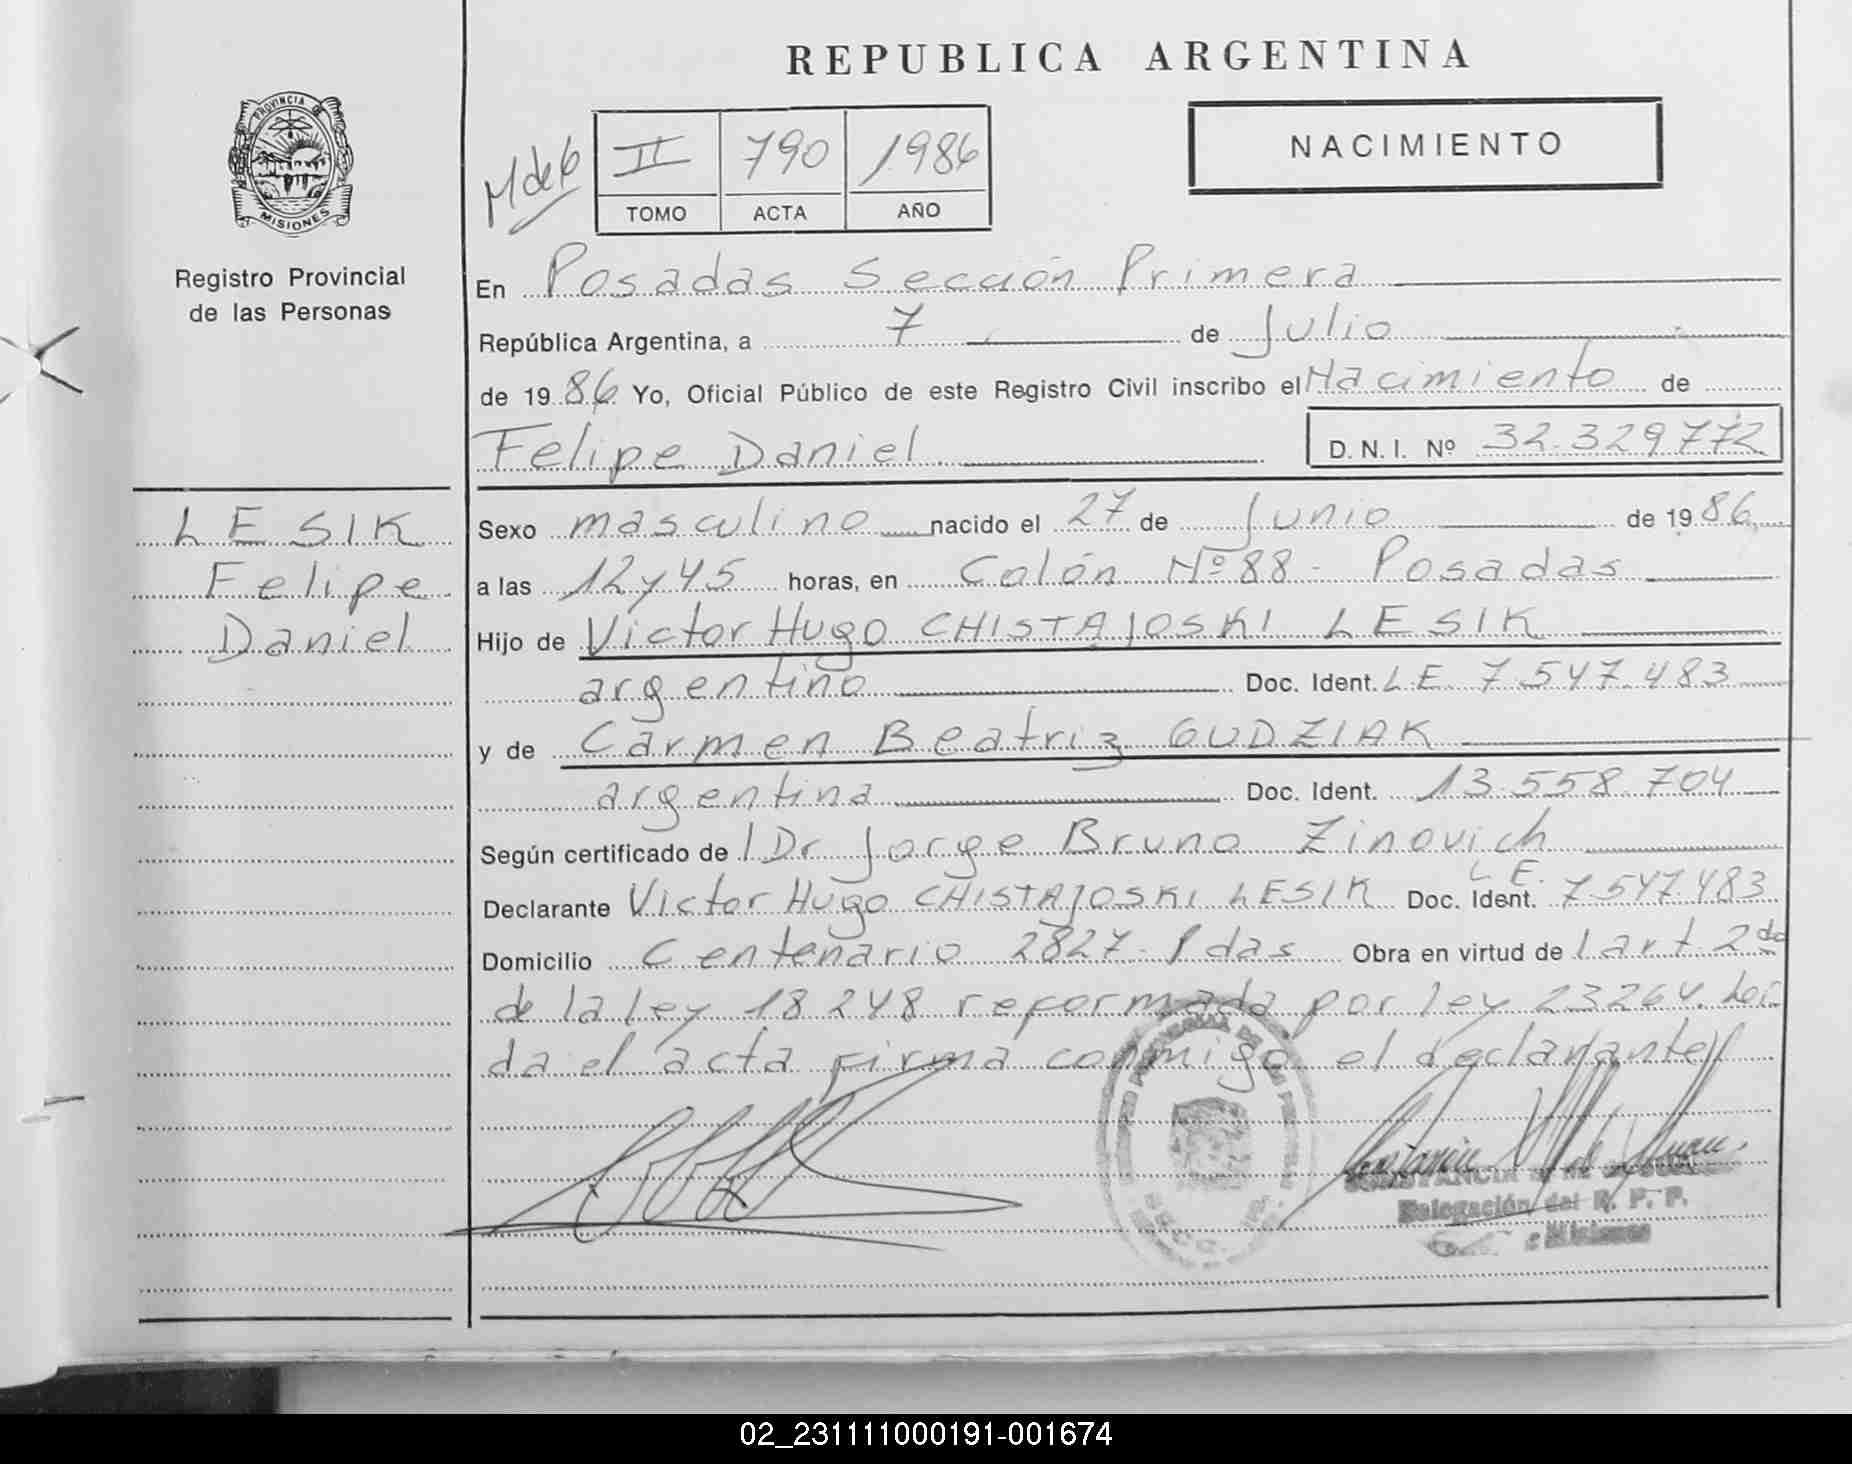 REPUBLICA ARGENTINA
PROVINCIA DE
MISIONES
Registro Provincial
de las Personas
M de 6
II 790 1986
TOMO ACTA AÑO
NACIMIENTO
En Posadas Sección Primera
República Argentina, a 7 de Julio
de 1986 Yo, Oficial Público de este Registro Civil inscribo el Nacimiento de
Felipe Daniel D.N.I. Nº 32.329.772
LESIK
Felipe
Daniel
Sexo masculino nacido el 27 de Junio de 1986
a las 12 y 45 horas, en Colón Nº 88 - Posadas
Hijo de Victor Hugo CHISTAJOSKI LESIK
argentino Doc. Ident. LE 7.547.483
y de Carmen Beatriz GUDZIAK
argentina Doc. Ident. 13.558.704
Según certificado de l Dr Jorge Bruno Zinovich
Declarante Victor Hugo CHISTAJOSKI LESIK Doc. Ident. L.E. 7.547.483
Domicilio Centenario 2827 - Pdas Obra en virtud de l art. 2do
de la ley 18248 reformada por ley 23264. Leí
da el acta firma conmigo el declarante
CONSTANCIA
Delegación del R. P. P.
Misiones
02_231111000191-001674